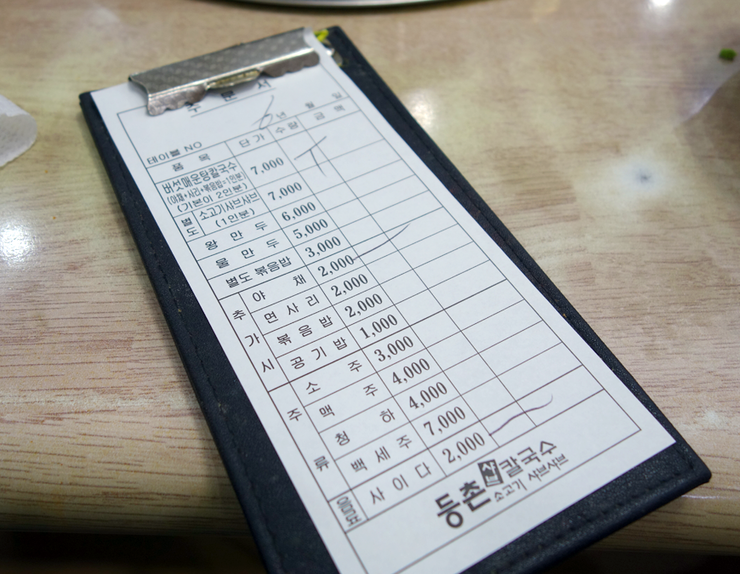 주문서
6 년 월 일
테이블 NO
품 목 단가 수량 금 액
버섯매운탕칼국수
(야채+사리+볶음밥=1인분)
(기본이 2인분) 7,000 T
별도 소고기샤브샤브
(1인분) 7,000
왕 만 두 6,000
물 만 두 5,000
별도 볶음밥 3,000
추가시 야 채 2,000
면 사 리 2,000
볶 음 밥 2,000
공 기 밥 1,000
주류 소 주 3,000
맥 주 4,000
청 하 4,000
백 세 주 7,000
음료수 사 이 다 2,000
등촌 샤브 칼국수
소고기 샤브샤브